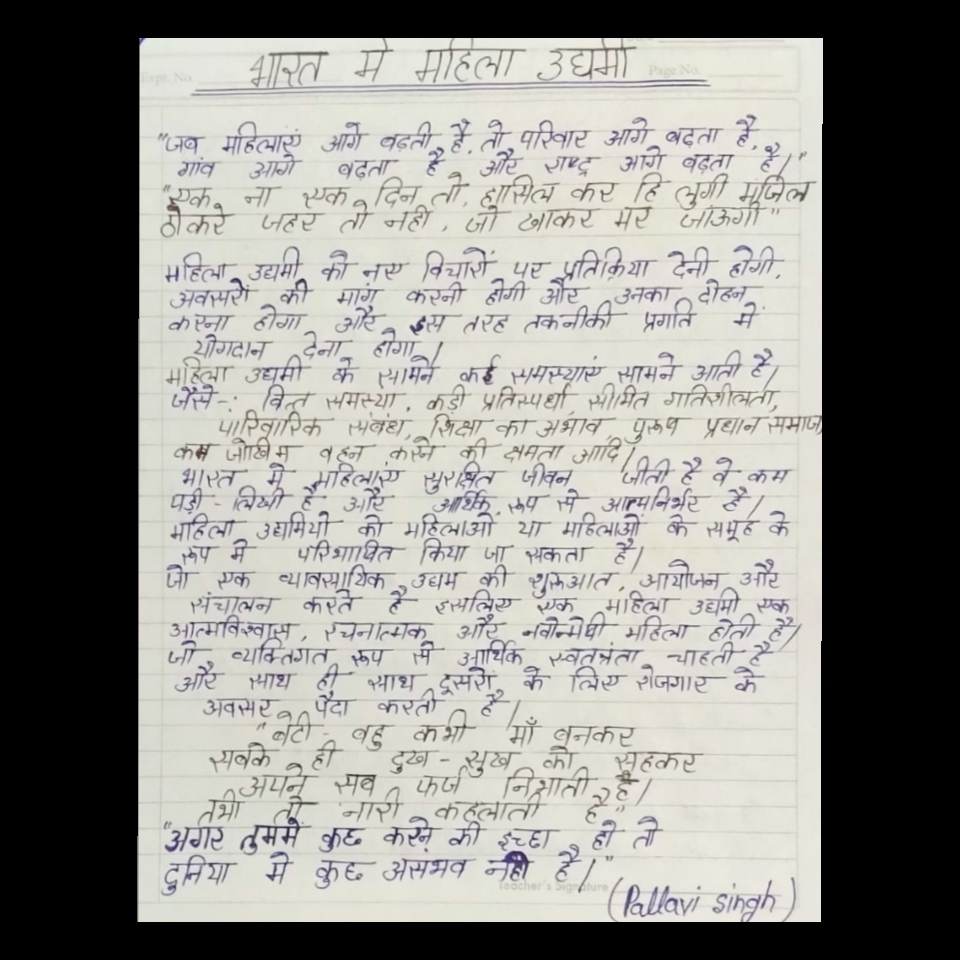 Expt. No.
Page No.
भारत मे महिला उद्यमी
"जब महिलाएं आगे बढ़ती है, तो परिवार आगे बढ़ता है,
गांव आगे बढ़ता है और राष्ट्र आगे बढ़ता है।"
"एक ना एक दिन तो, हासिल कर हि लुगी मंजिल
ठोकरे जहर तो नही, जो खाकर मर जाऊगी"
महिला उद्यमी को नए विचारों पर प्रतिक्रिया देनी होगी,
अवसरों की मांग करनी होगी और उनका दोहन
करना होगा और इस तरह तकनीकी प्रगति में
योगदान देना होगा।
महिला उद्यमी के सामने कई समस्याएं सामने आती है।
जैसे-: वित्त समस्या, कड़ी प्रतिस्पर्धा, सीमित गतिशीलता,
पारिवारिक संबंध, शिक्षा का अभाव पुरुष प्रधान समाज,
कम जोखिम वहन करने की क्षमता आदि।
भारत मे महिलाएं सुरक्षित जीवन जीती है वे कम
पड़ी-लिखी है और आर्थिक रूप से आत्मनिर्भर है।
महिला उद्यमियो को महिलाओ या महिलाओं के समूह के
रूप मे परिभाषित किया जा सकता है।
जो एक व्यावसायिक उद्यम की शुरुआत, आयोजन और
संचालन करते है इसलिए एक महिला उद्यमी एक
आत्मविश्वास, रचनात्मक और नवोन्मेषी महिला होती है।
जो व्यक्तिगत रूप से आर्थिक स्वतंत्रता चाहती है
और साथ ही साथ दूसरों के लिए रोजगार के
अवसर पैदा करती है।
"बेटी-बहु कभी माँ बनकर
सबके ही दुख-सुख को सहकर
अपने सब फर्ज निभाती है।
तभी तो नारी कहलाती है"
"अगर तुममें कुछ करने की इच्छा हो तो
दुनिया मे कुछ असंभव नही है।"
Teacher's Signature
(Pallavi singh)